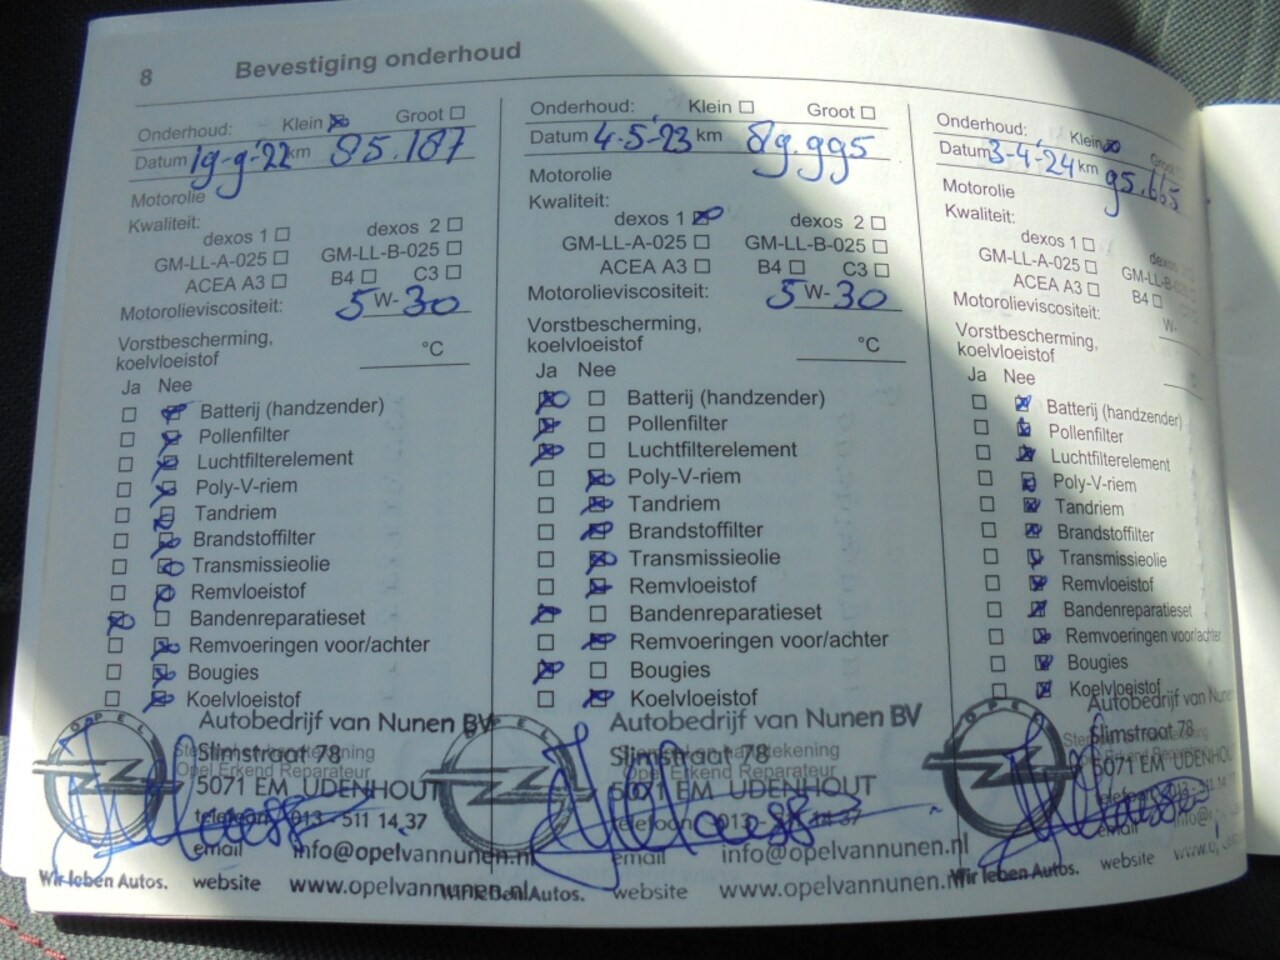 8 Bevestiging onderhoud
Onderhoud: Klein Groot
Datum 19-9-'22 km 85.187
Motorolie
Kwaliteit:
dexos 1 dexos 2
GM-LL-A-025 GM-LL-B-025
ACEA A3 B4 C3
Motorolieviscositeit: 5 W- 30
Vorstbescherming,
koelvloeistof °C
Ja Nee
Batterij (handzender)
Pollenfilter
Luchtfilterelement
Poly-V-riem
Tandriem
Brandstoffilter
Transmissieolie
Remvloeistof
Bandenreparatieset
Remvoeringen voor/achter
Bougies
Koelvloeistof
OPEL
Autobedrijf van Nunen BV
Slimstraat 78
Opel Erkend Reparateur
5071 EM UDENHOUT
telefoon 013 - 511 14 37
email info@opelvannunen.nl
Wir leben Autos. website www.opelvannunen.nl
Onderhoud: Klein Groot
Datum 4-5-'23 km 89.995
Motorolie
Kwaliteit:
dexos 1 dexos 2
GM-LL-A-025 GM-LL-B-025
ACEA A3 B4 C3
Motorolieviscositeit: 5 W- 30
Vorstbescherming,
koelvloeistof °C
Ja Nee
Batterij (handzender)
Pollenfilter
Luchtfilterelement
Poly-V-riem
Tandriem
Brandstoffilter
Transmissieolie
Remvloeistof
Bandenreparatieset
Remvoeringen voor/achter
Bougies
Koelvloeistof
OPEL
Autobedrijf van Nunen BV
Slimstraat 78
Stempel en handtekening
Opel Erkend Reparateur
5071 EM UDENHOUT
telefoon 013 - 511 14 37
email info@opelvannunen.nl
Wir leben Autos. website www.opelvannunen.nl
Onderhoud: Klein Groot
Datum 3-4-'24 km 95.665
Motorolie
Kwaliteit:
dexos 1 dexos
GM-LL-A-025 GM-LL-B-
ACEA A3 B4
Motorolieviscositeit: W-
Vorstbescherming,
koelvloeistof
Ja Nee
Batterij (handzender)
Pollenfilter
Luchtfilterelement
Poly-V-riem
Tandriem
Brandstoffilter
Transmissieolie
Remvloeistof
Bandenreparatieset
Remvoeringen voor/achter
Bougies
Koelvloeistof
OPEL
Autobedrijf van Nunen
Slimstraat 78
5071 EM UDENHOUT
telefoon 511 14
email info@
Wir leben Autos. website